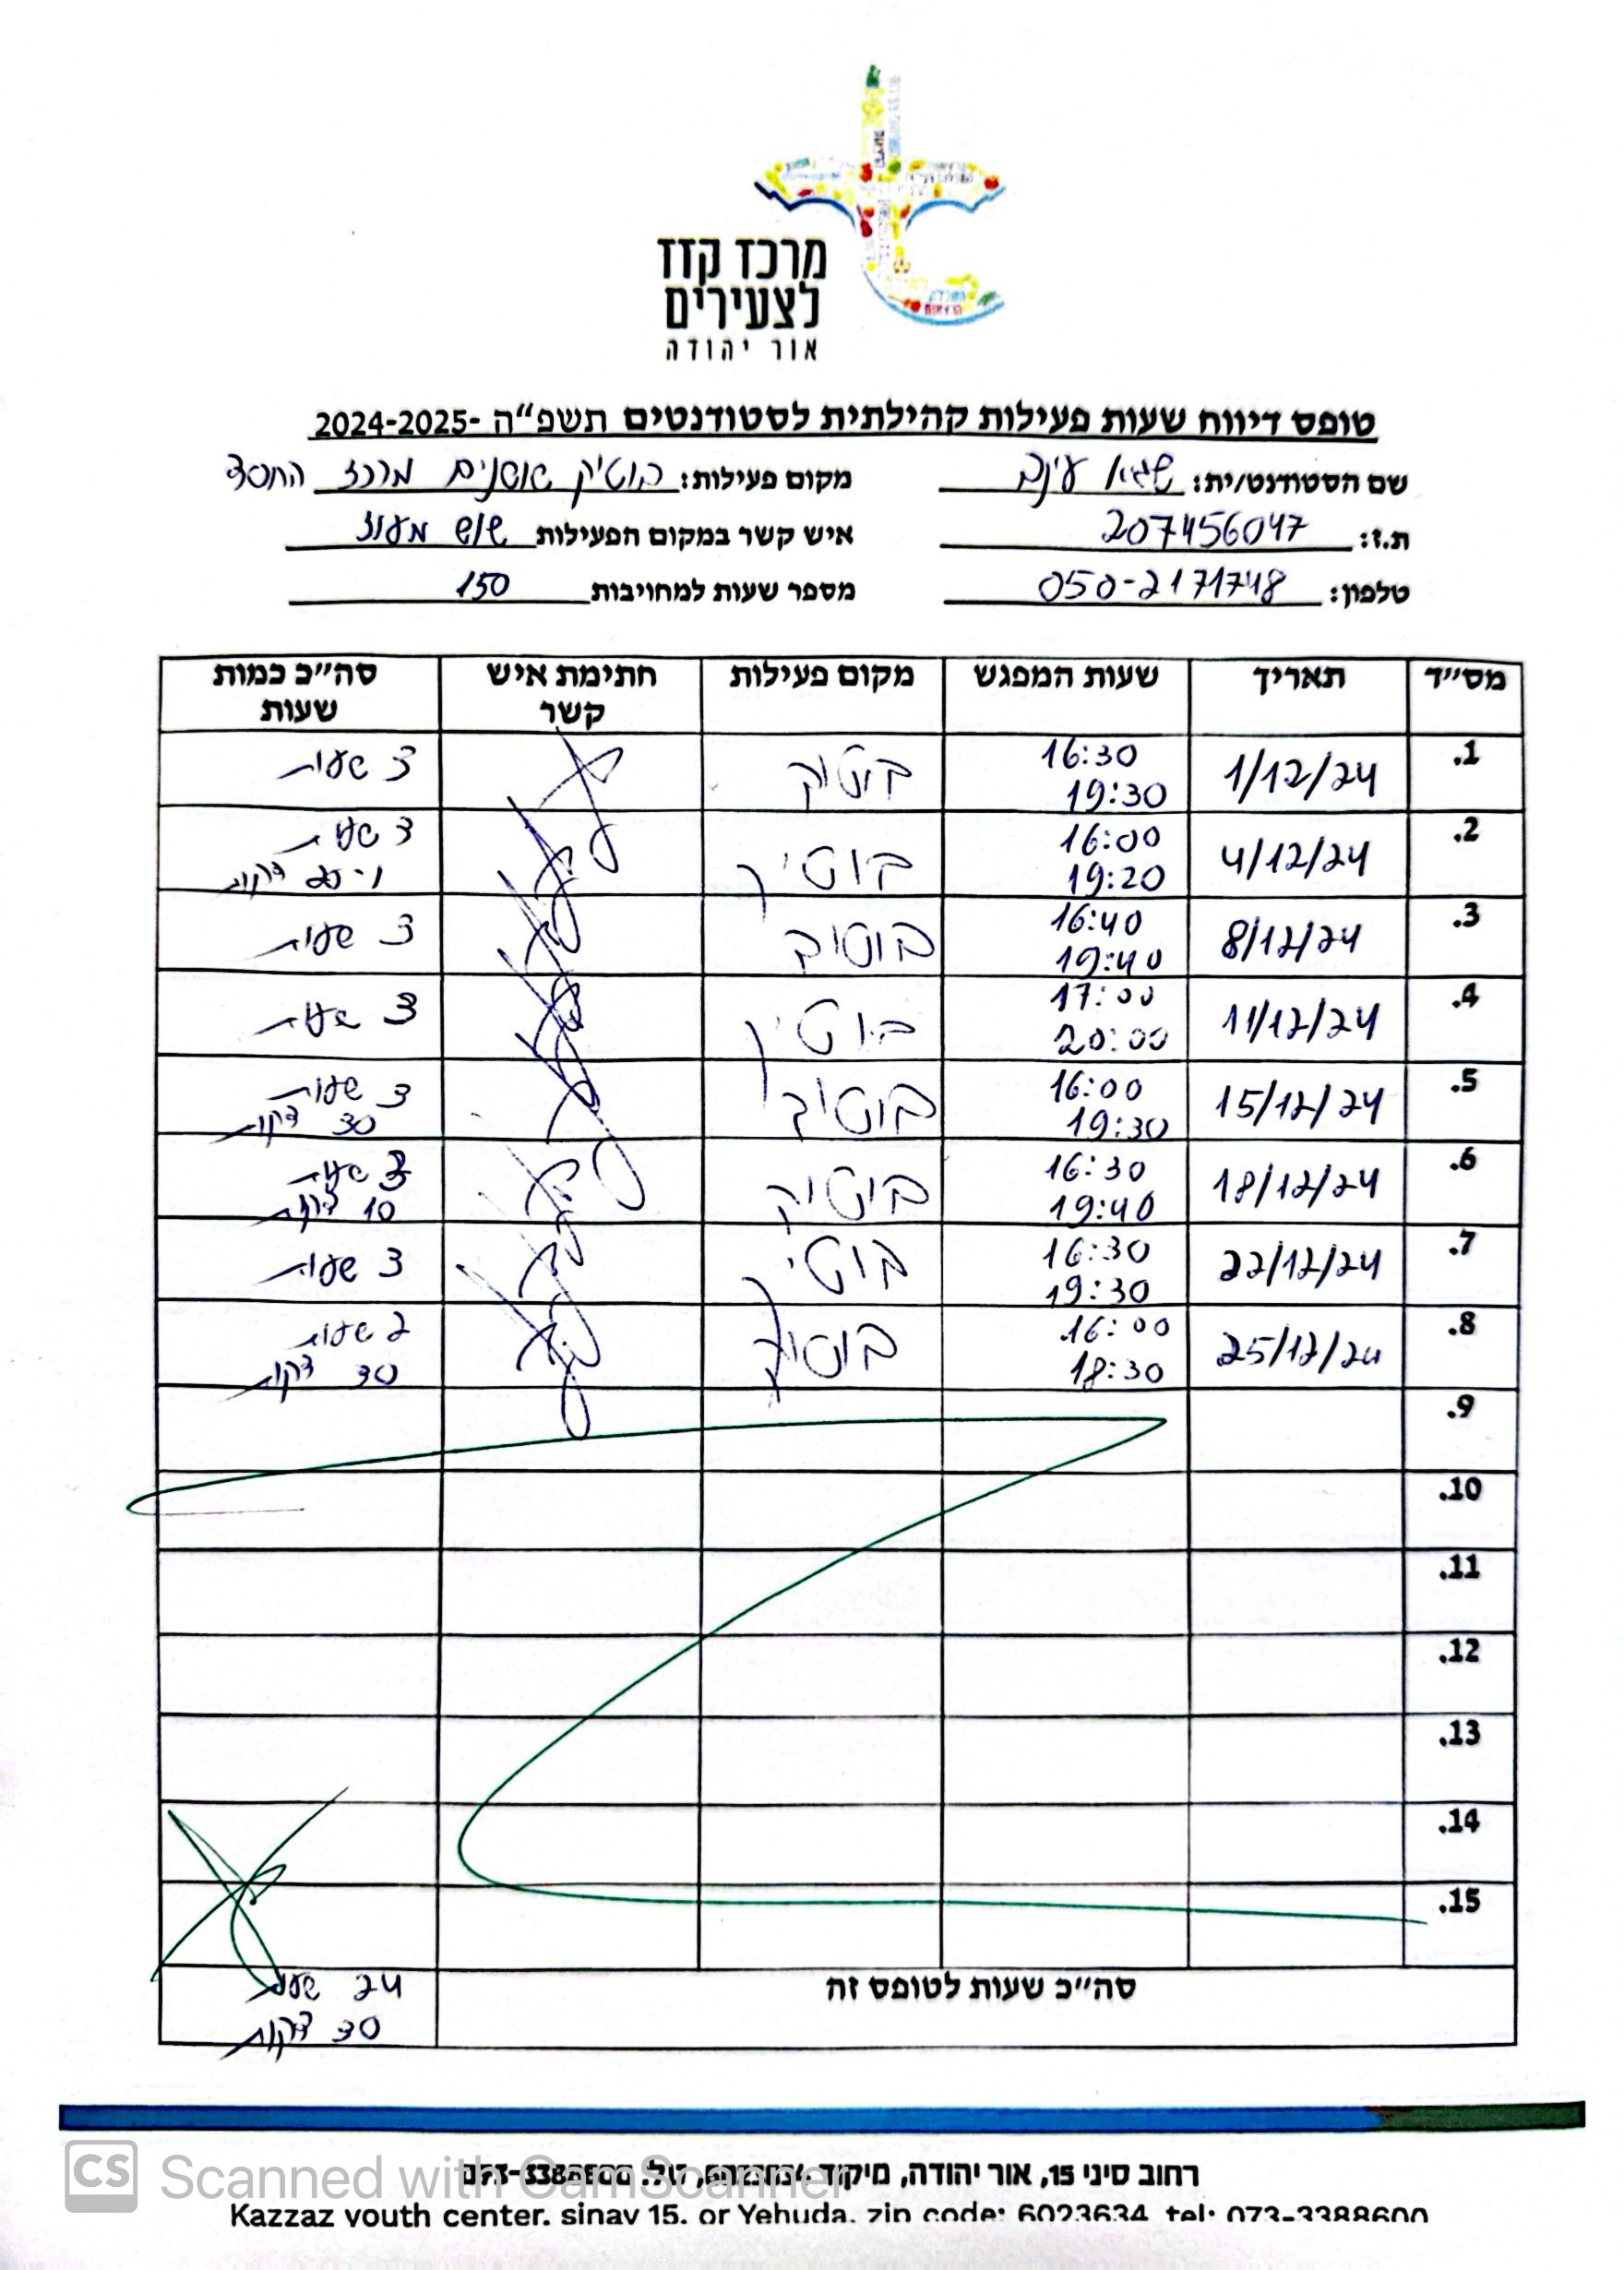 מרכז קזז
לצעירים
אור יהודה
טופס דיווח שעות פעילות קהילתית לסטודנטים תשפ״ה -2024-2025
שם הסטודנט/ית: שגיא מקום פעילות: בוטיק שושנים מרכז החסד
ת.ז: 207456047 איש קשר במקום הפעילות שוש מעוז
טלפון: 050-2171748 מספר שעות למחויבות 150
מס״ד תאריך שעות המפגש מקום פעילות חתימת איש קשר סה״כ כמות שעות
.1 1/12/24 16:30 19:30 בוטיק 3 שעות
.2 4/12/24 16:00 19:20 בוטיק 3 שעות ו-20 דקות
.3 8/12/24 16:40 19:40 בוטיק 3 שעות
.4 11/12/24 17:00 20:00 בוטיק 3 שעות
.5 15/12/24 16:00 19:30 בוטיק 3 שעות 30 דקות
.6 18/12/24 16:30 19:40 בוטיק 3 שעות 10 דקות
.7 22/12/24 16:30 19:30 בוטיק 3 שעות
.8 25/12/24 16:00 18:30 בוטיק 2 שעות 30 דקות
.9
.10
.11
.12
.13
.14
.15
סה״כ שעות לטופס זה 24 שעות 30 דקות
רחוב סיני 15, אור יהודה, מיקוד
Kazzaz youth center. sinav 15. or Yehuda. zip code: 6023634 tel: 073-3388600
CS Scanned with CamScanner